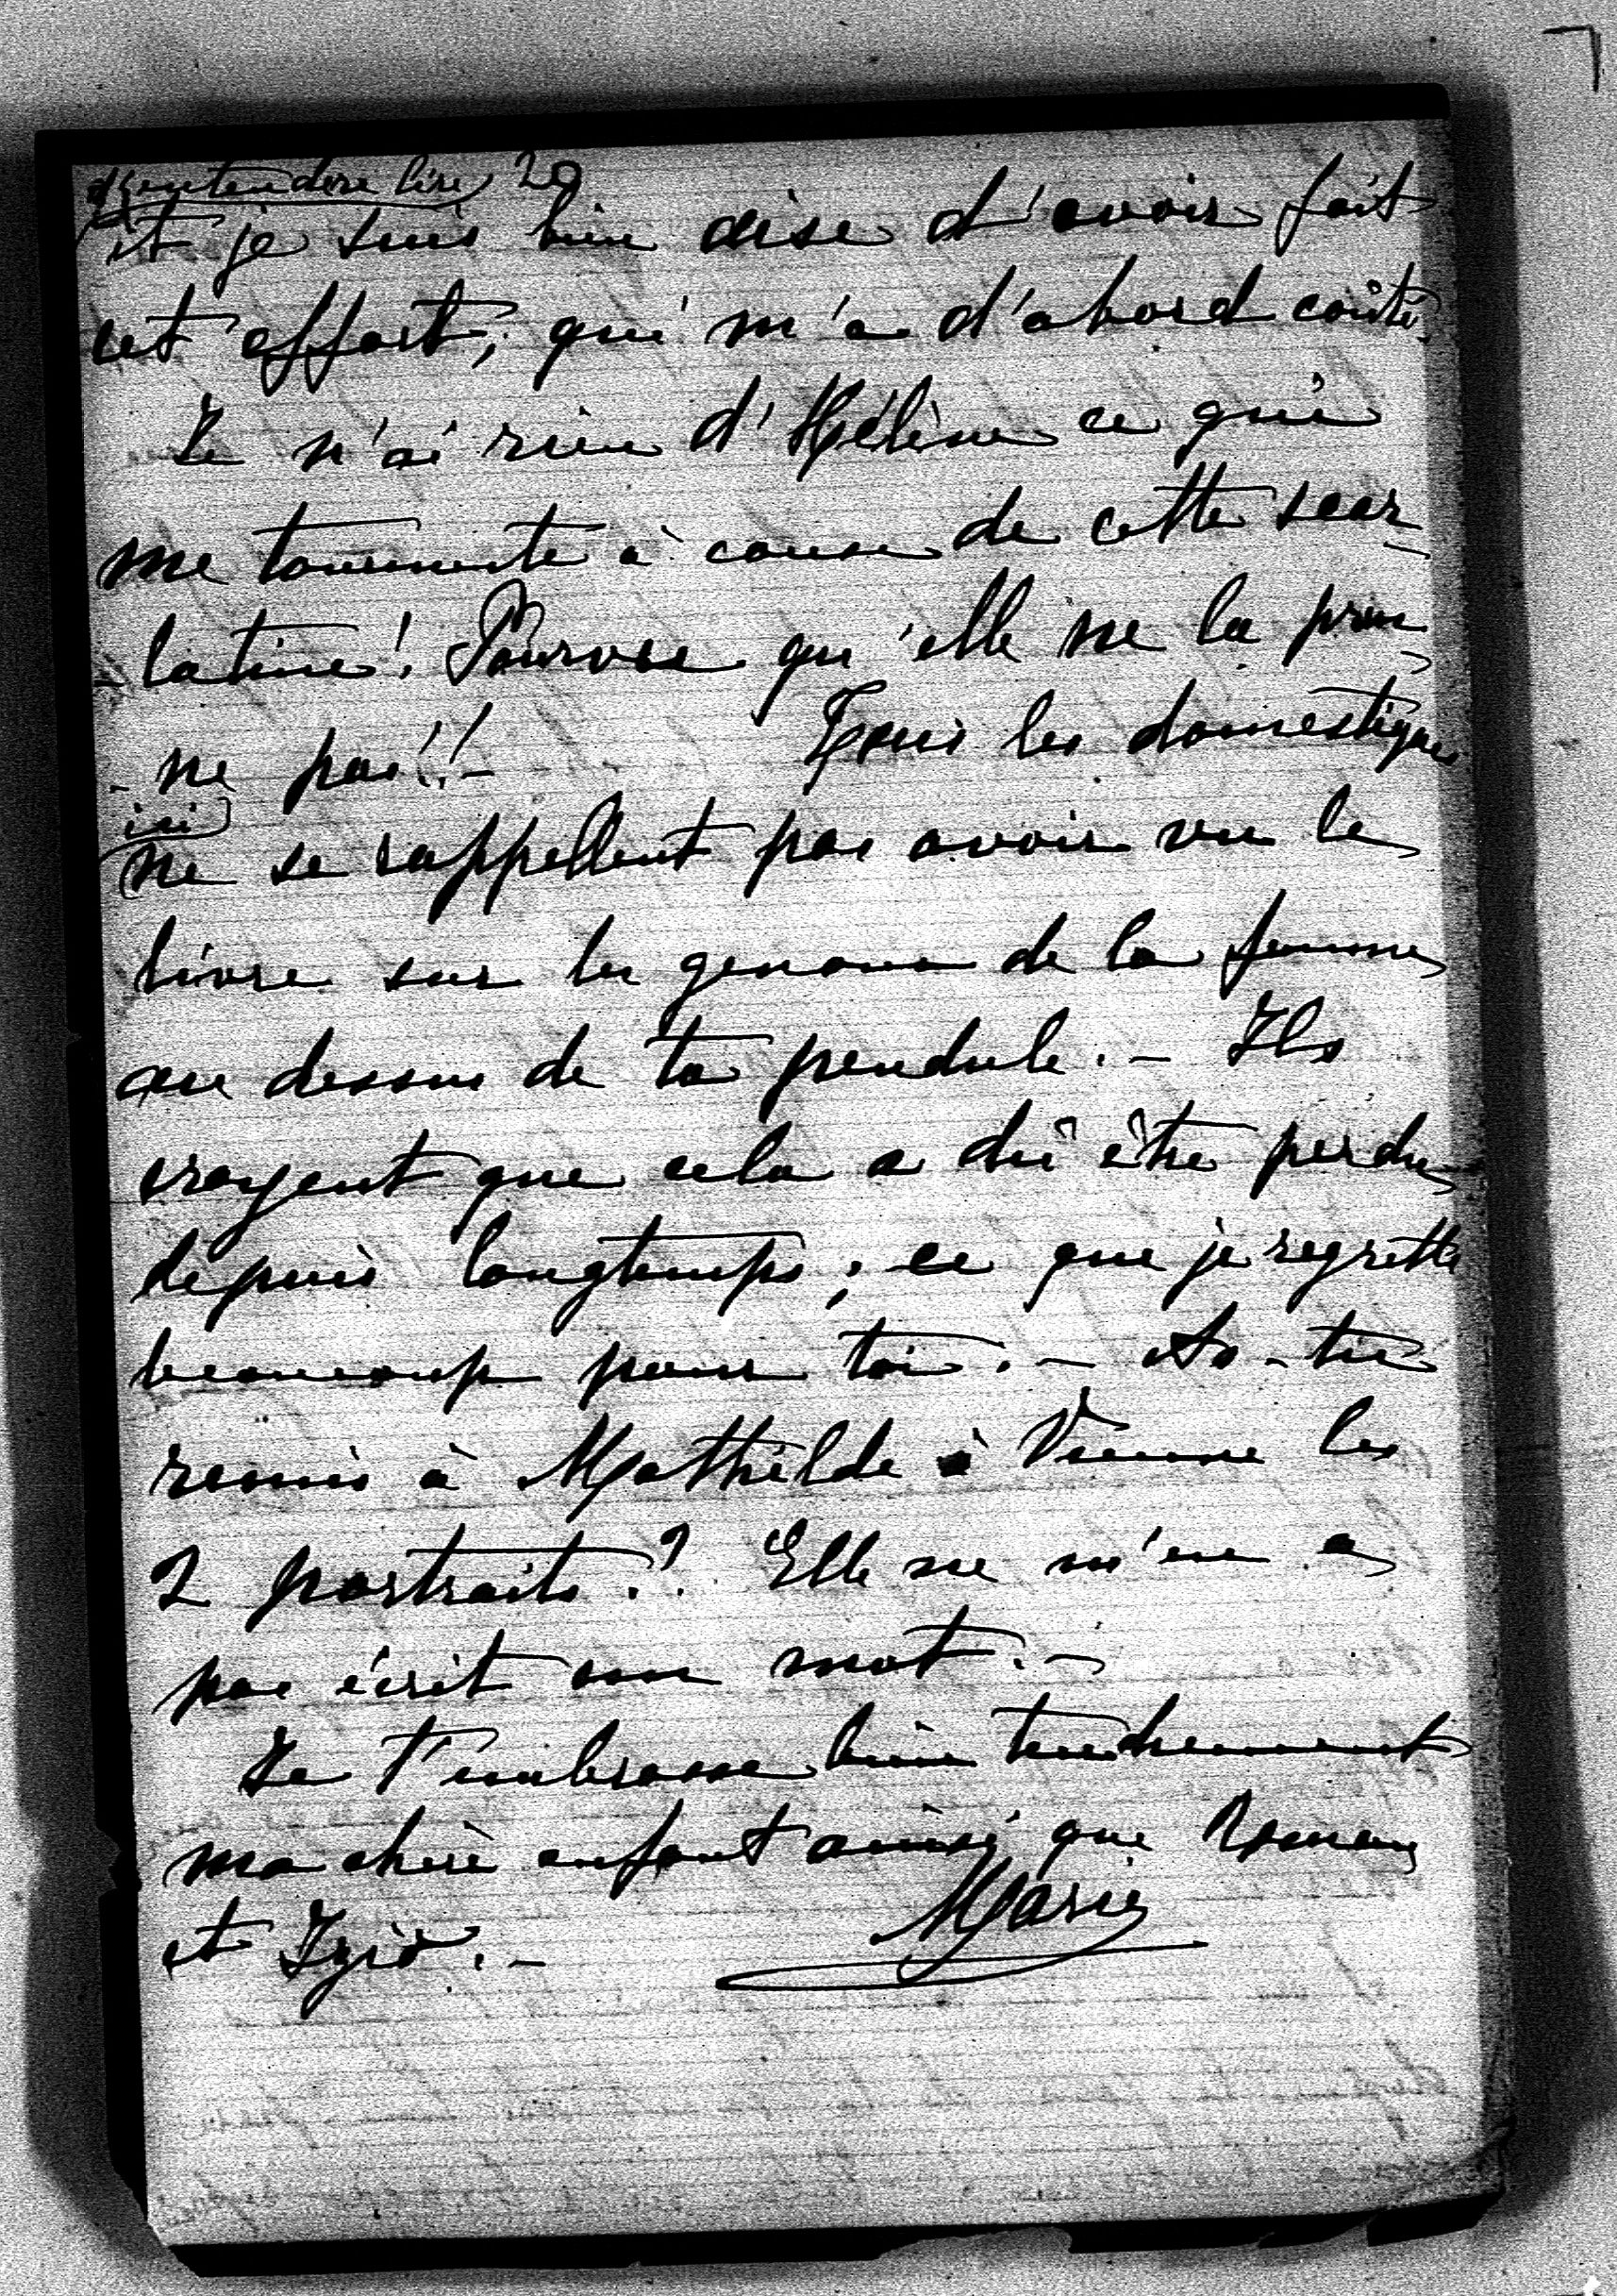 d'entendre lire 20
et je suis bien aise d'avoir fait
cet effort, qui m'a d'abord coûté.
Je n'ai rien d'Hélène ce qui
me tourmente à cause de cette scar
-latine! Pourvu qu'elle ne la pren
-ne pas!! - Tous les domestiques
ici
ne se rappellent pas avoir vu le
livre sur les genoux de la femme
au dessus de ta pendule. - Ils
croyent que cela a dû être perdu
depuis longtemps; ce que je regrette
beaucoup pour toi. - As-tu
remis à Mathilde à Vienne les
2 portraits? Elle ne m'en a
pas écrit un mot. -
Je t'embrasse bien tendrement
ma chère enfant ainsi que Roman
et Izio. - Marie